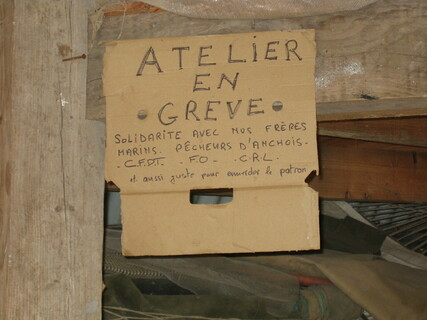 ATELIER
EN
• GREVE •
SOLIDARITE AVEC NOS FRÈRES
MARINS. PÊCHEURS D'ANCHOIS.
. C.F.D.T. . F.O. . C.R.L.
et aussi juste pour emmerder le patron